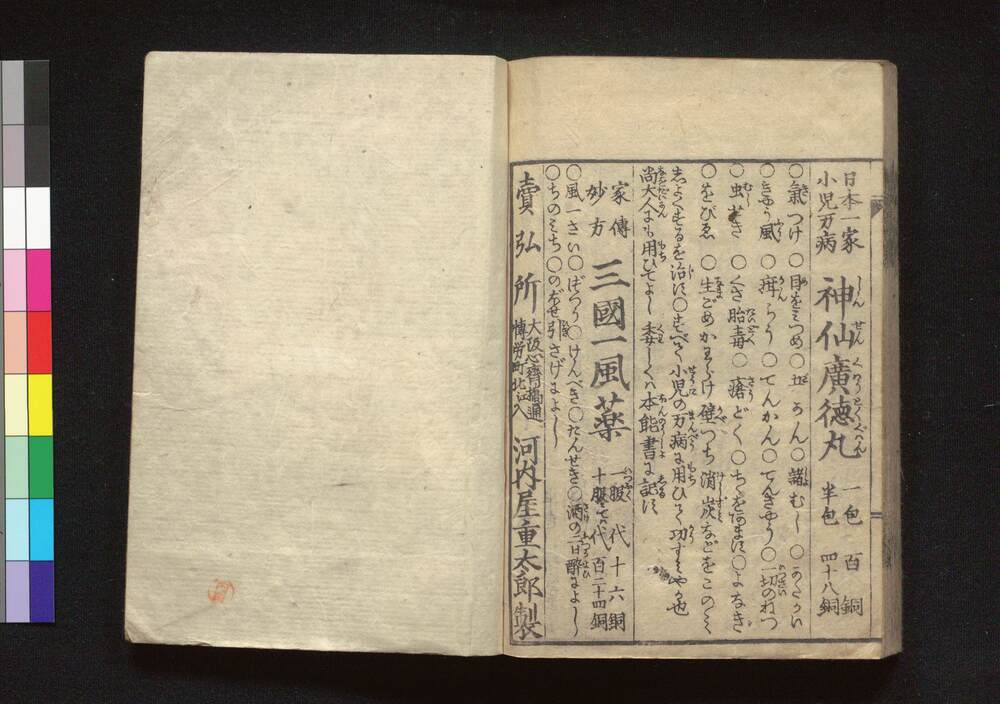 日本一家
小児万病
神仙廣徳丸
しんせんくわうとくぐハん
一包 百銅
半包 四十八銅
○氣つけ○目をミつめ○五かん○諸むし
○きやう風○疳らう○てんかん○てんきやう○一切のねつ
○虫○くさ胎毒○瘡どく○ちをあます○よなき
○をびゑ○生ごめかわらけ壁つち消炭などをこのミ
しよくするを治す○すべて小児の万病に用ひて功すミやか也
尚大人にも用ひてよし委しくハ本能書に記す
家傳
妙方
三國一風薬
一服代十六銅
十服代百二十四銅
○風一さい○づつう○けんべき○たんせき○酒の二日酔によし
○ちのミち○のぼせ引さげによし
賣弘所
大阪心齋橋通
博労町北江入
河内屋重太郎製